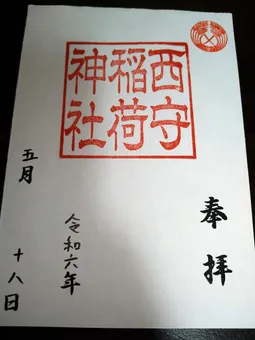 奉拝
西守
稲荷
神社
令和六年
五月
十八日